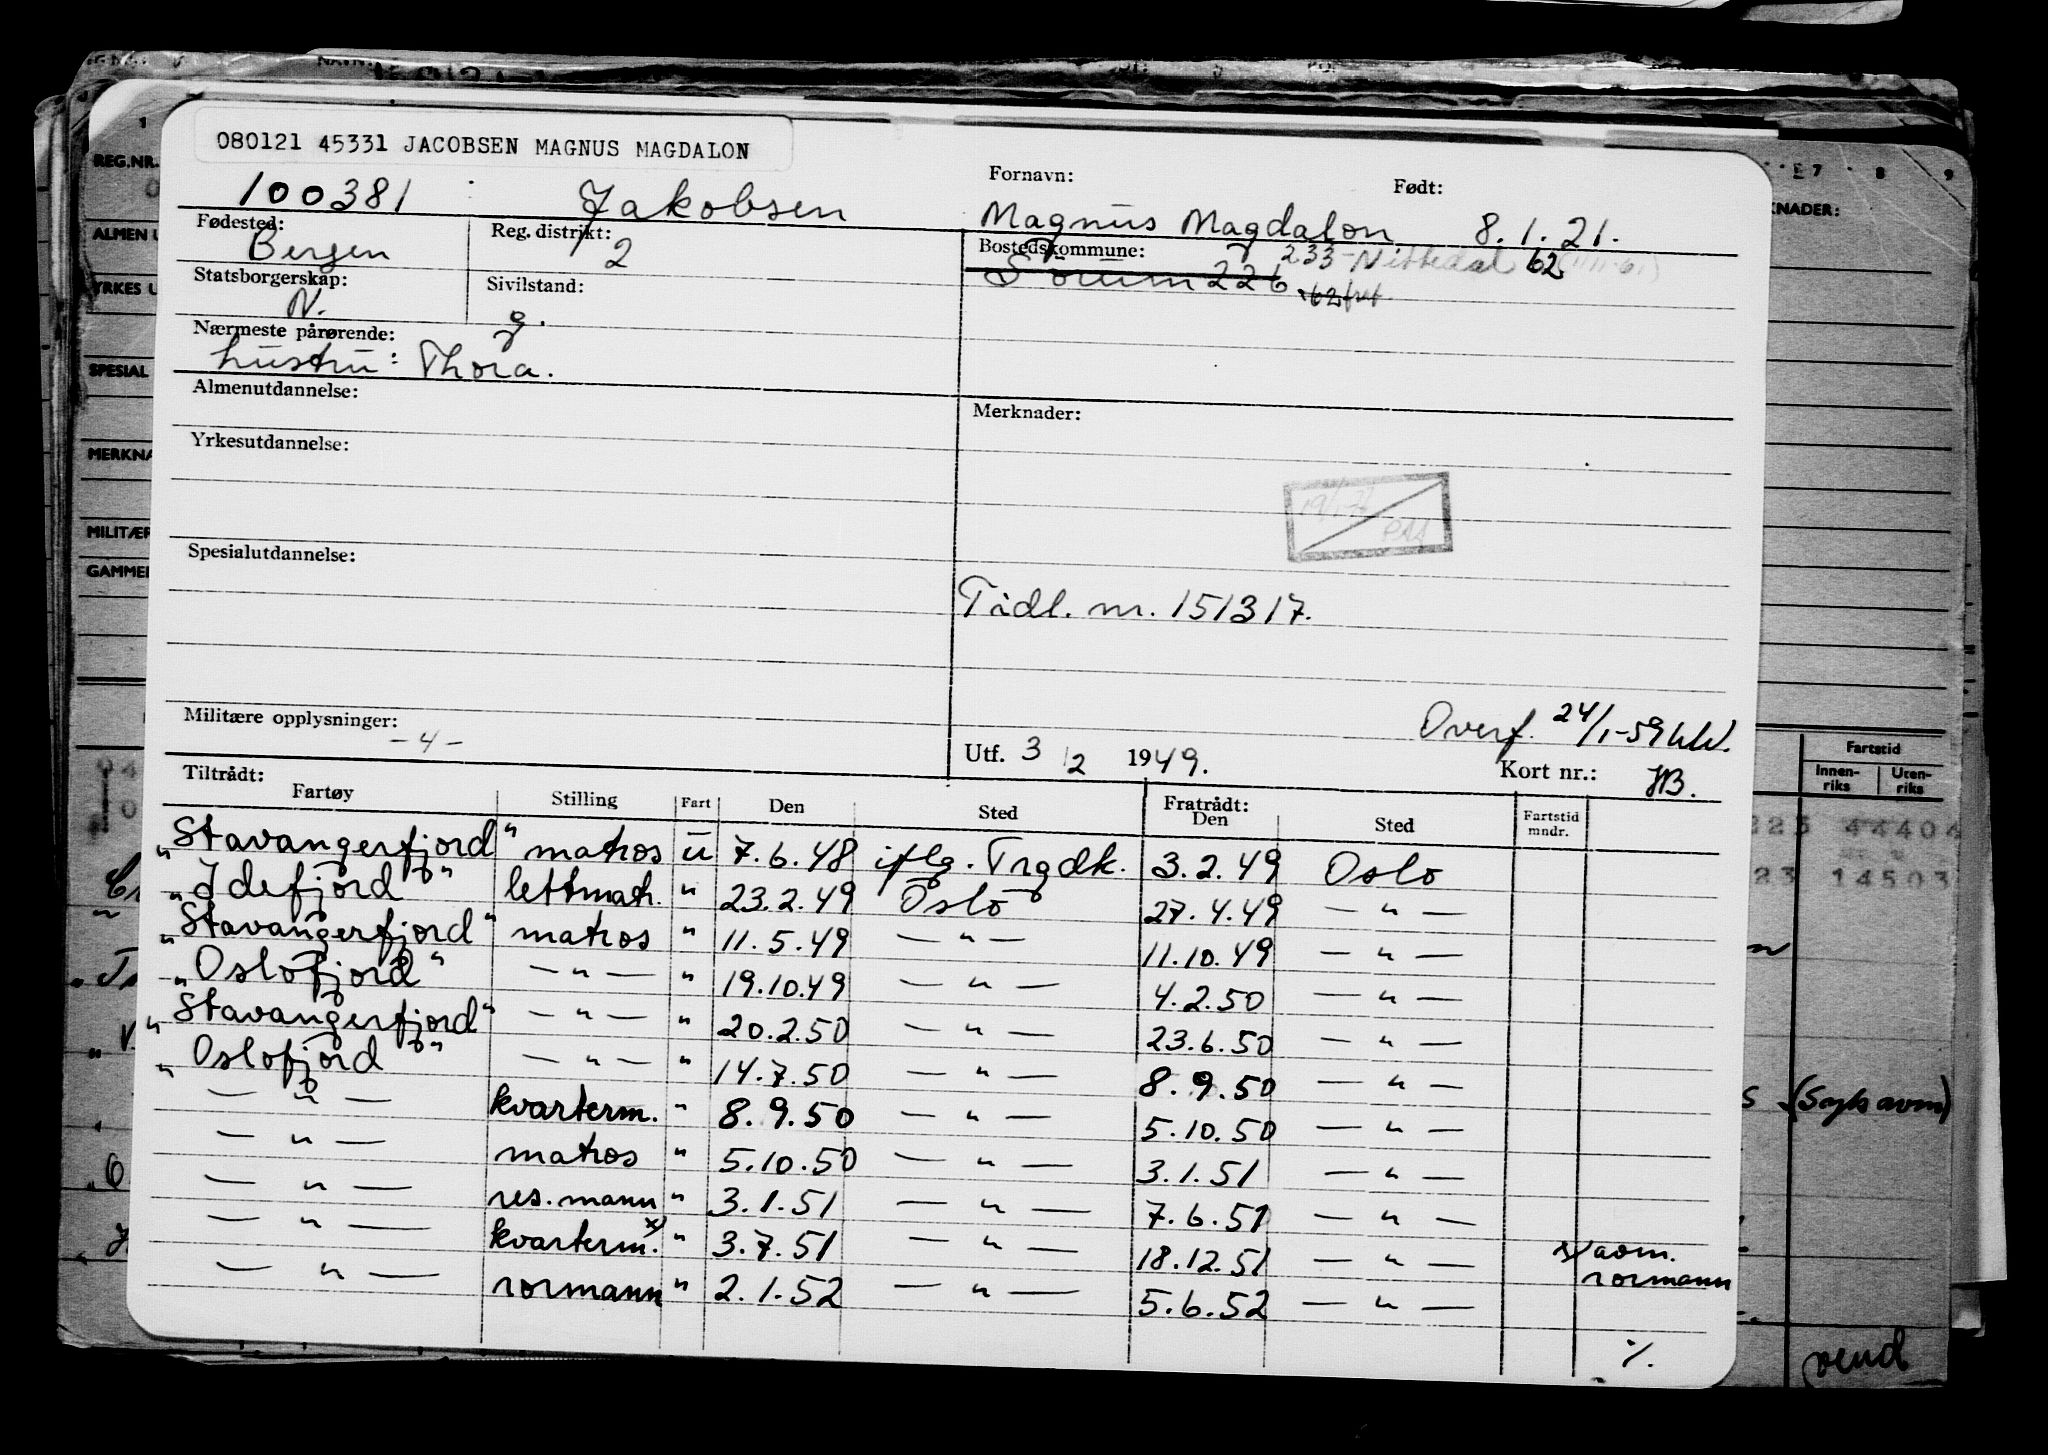 080121 45331 JACOBSEN MAGNUS MAGDALON
100381 Jakobsen Fornavn: Magnus Magdalon Født: 8.1.21.
Fødested: Bergen Reg. distrikt: 2 Bostedskommune: 233 - Nittedal 62
Sørum 226
Statsborgerskap: N. Sivilstand: g.
Nærmeste pårørende:
hustru: Thora.
Almenutdannelse: Merknader:
Yrkesutdannelse:
Spesialutdannelse:
Tidl. nr. 151317.
Militære opplysninger: -4-
Overf. 24/1-59
Utf. 3/2 1949. Kort nr.: HB.
Tiltrådt: Fratrådt:
Fartøy Stilling Fart Den Sted Den Sted Fartstid mndr.
"Stavangerfjord" matros u 7.6.48 iflg. Trgdk. 3.2.49 Oslo
"Idefjord" lettmatr. " 23.2.49 Oslo 27.4.49 — " —
"Stavangerfjord" matros " 11.5.49 — " — 11.10.49 — " —
"Oslofjord" — " — " 19.10.49 — " — 4.2.50 — " —
"Stavangerfjord" — " — " 20.2.50 — " — 23.6.50 — " —
"Oslofjord" — " — " 14.7.50 — " — 8.9.50 — " —
— " — kvarterm. " 8.9.50 — " — 5.10.50 — " —
— " — matros " 5.10.50 — " — 3.1.51 — " —
— " — res.mann " 3.1.51 — " — 7.6.51 — " —
— " — kvarterm. x) " 3.7.51 — " — 18.12.51 — " — x) avm. rormann
— " — rormann " 2.1.52 — " — 5.6.52 — " —
%.
REG.NR.
ALMEN U
YRKES U
SPESIAL
MERKNA
MILITÆR
GAMMEL
KNADER:
Fartstid
Innen-riks Uten-riks
44404
14503
vend